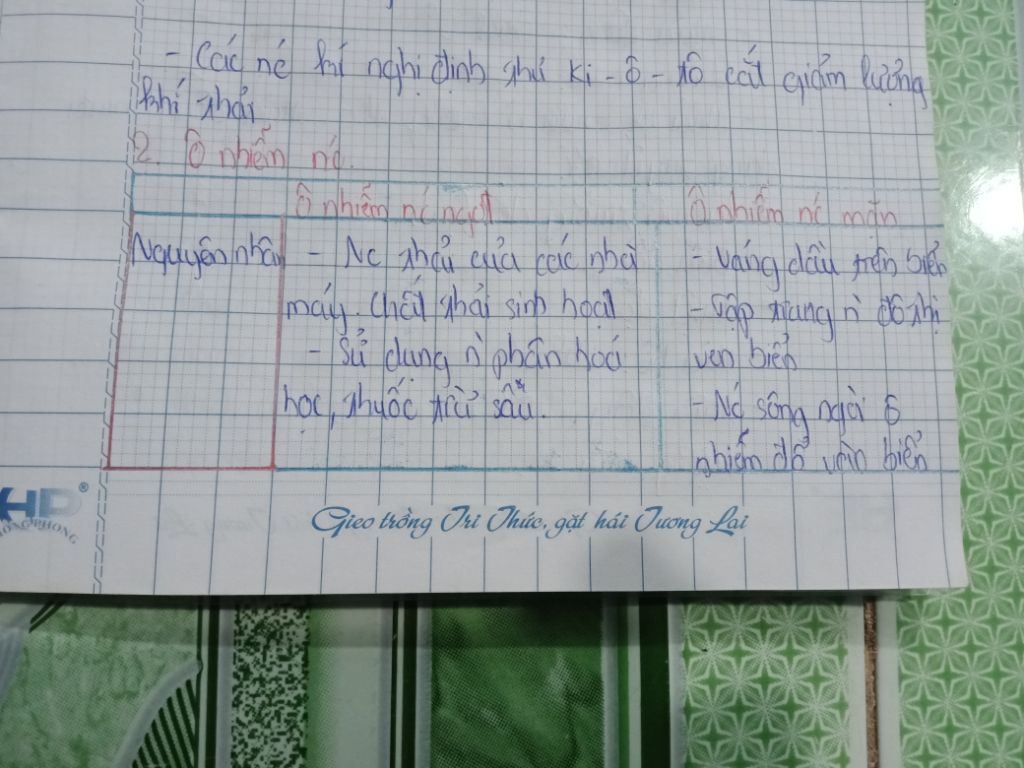 - Các nc kí nghị định thư Ki-ô-tô cắt giảm lượng
khí thải
2. Ô nhiễm nc.
Ô nhiễm nc ngọt
Ô nhiễm nc mặn
Nguyên nhân
- Nc thải của các nhà
máy. Chất thải sinh hoạt
- Sử dụng n` phân hoá
học, thuốc trừ sâu.
- Váng dầu trên biển
- Tập trung n` đô thị
ven biển
- Nc sông ngòi ô
nhiễm đổ vào biển
HP®
HỒNG PHONG
Gieo trồng Tri Thức, gặt hái Tương Lai